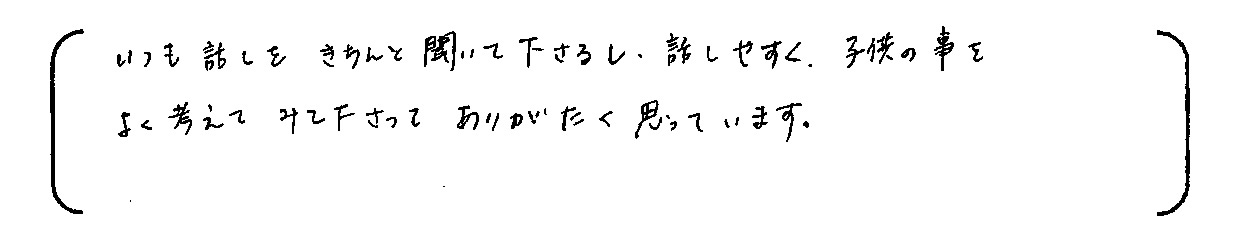 いつも話しをきちんと聞いて下さるし、話しやすく、子供の事を
よく考えてみて下さってありがたく思っています。